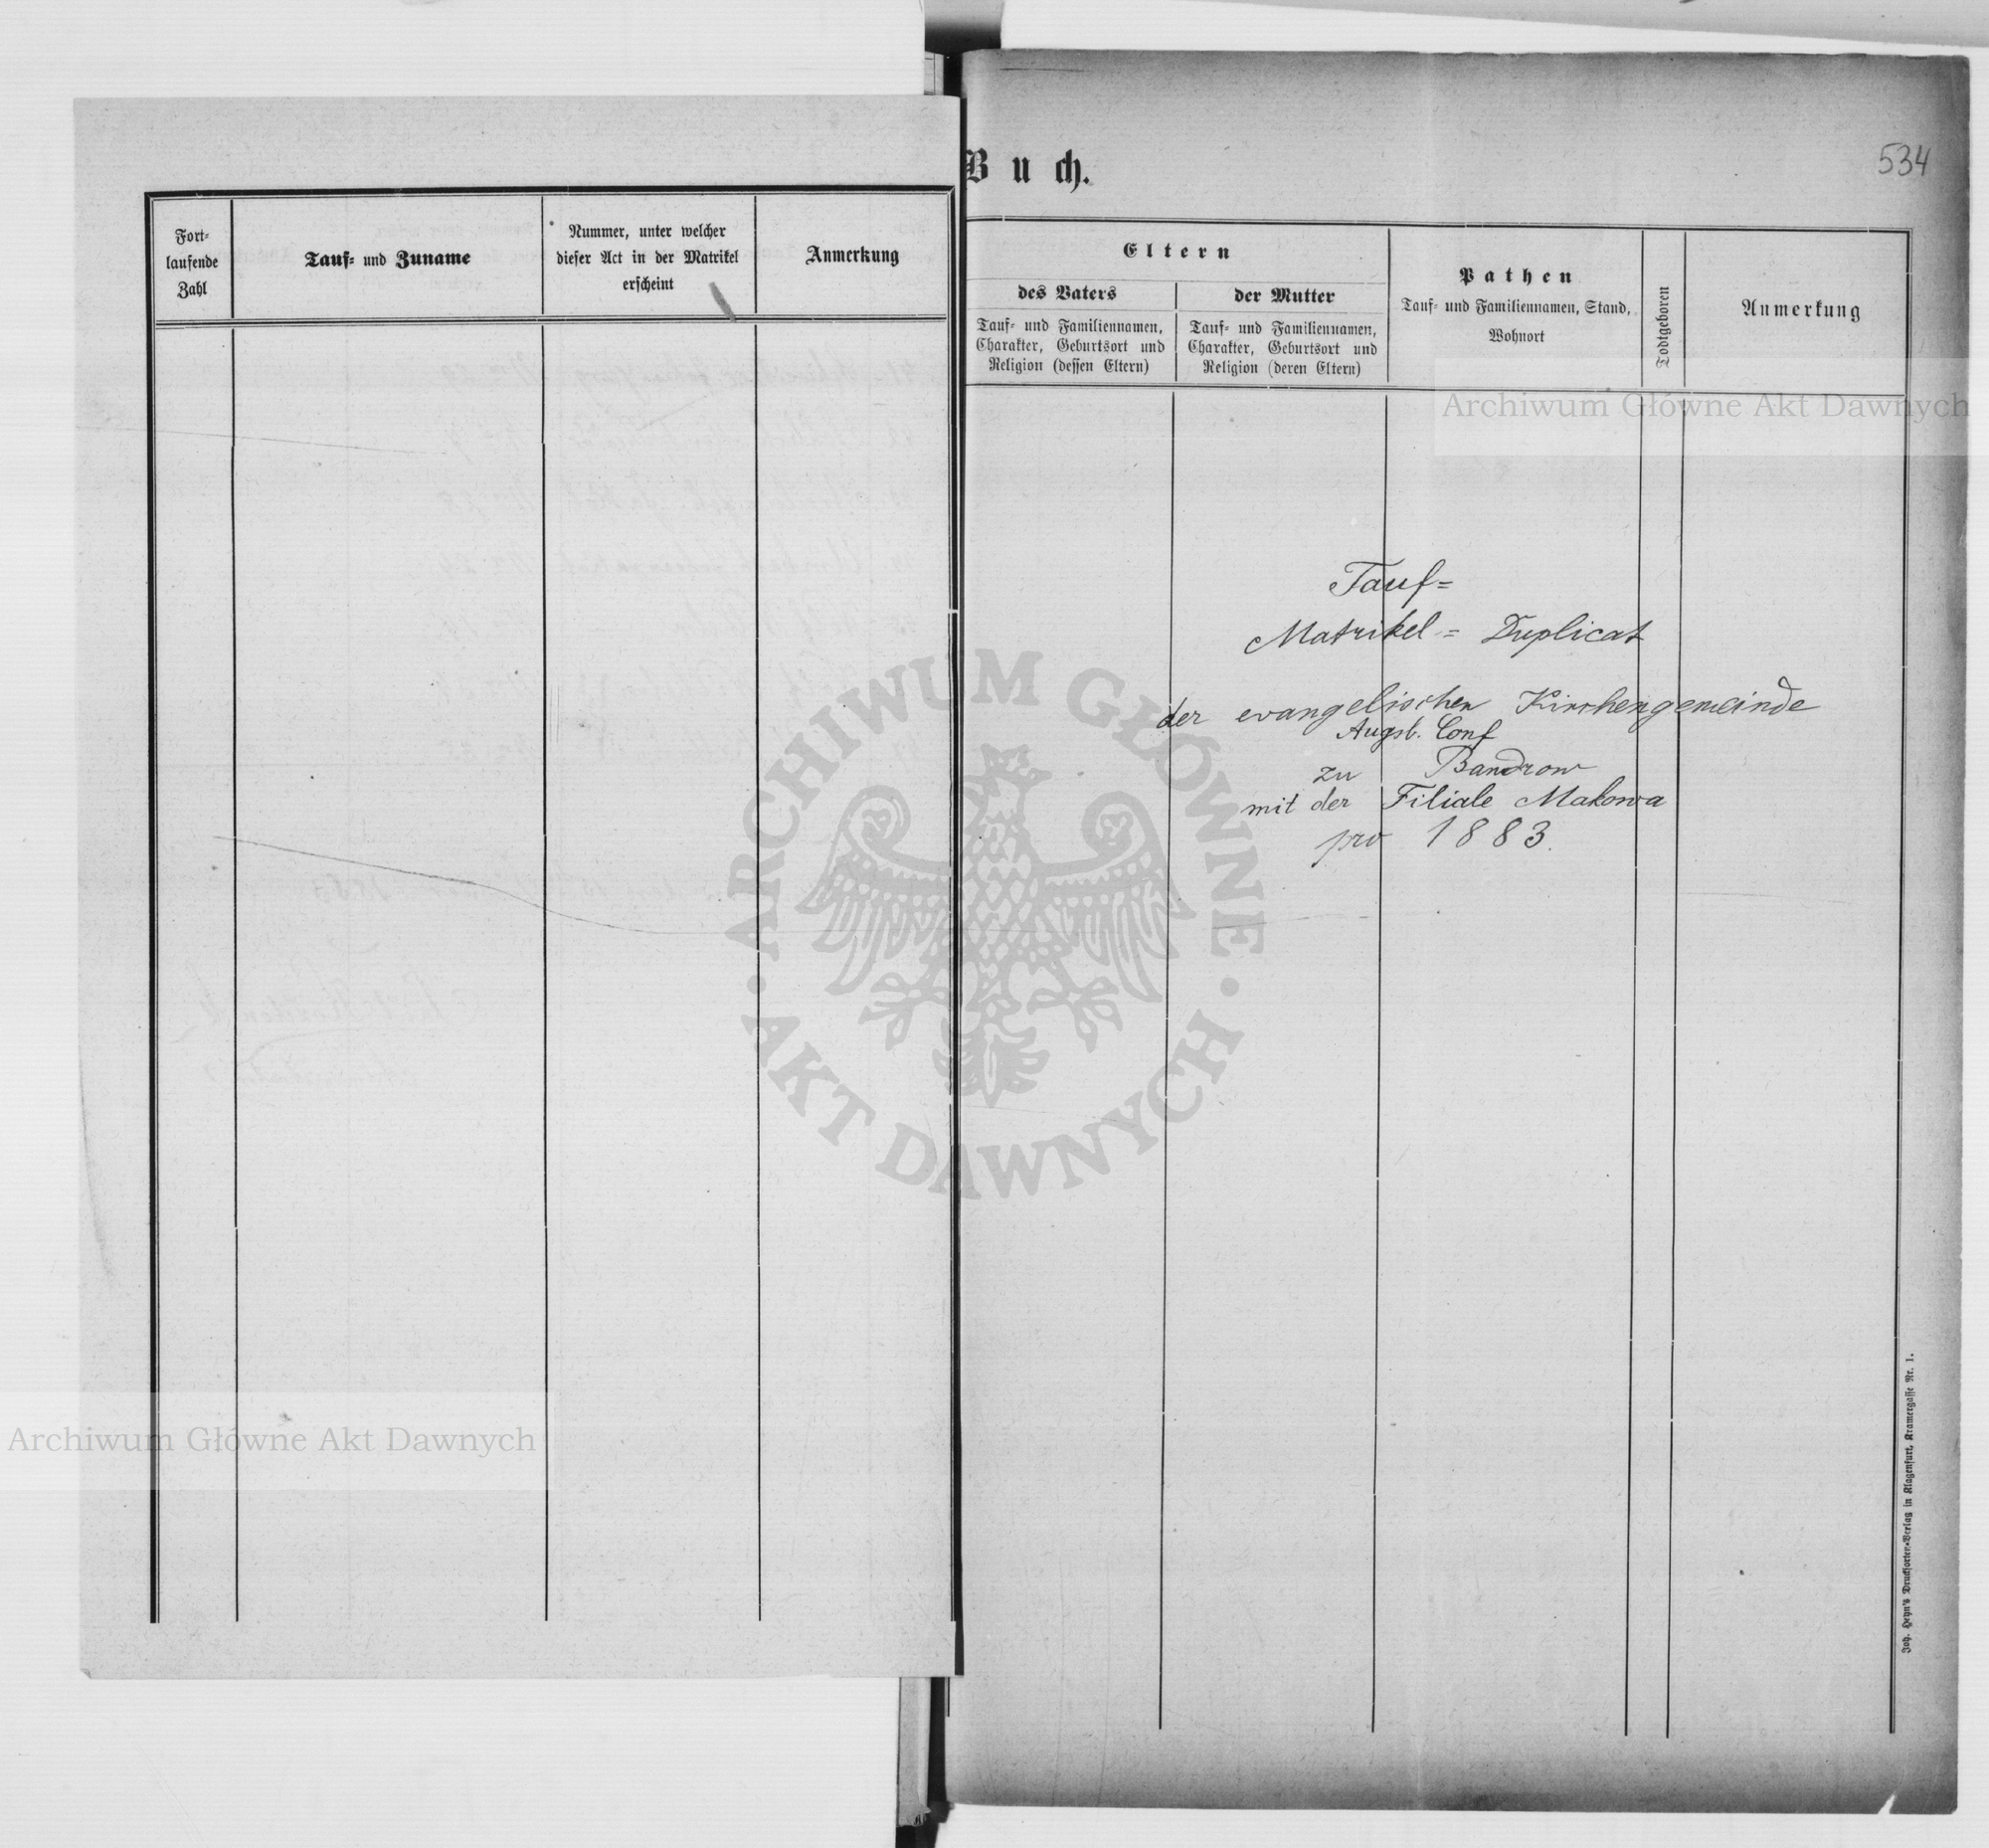 Fort-
laufende
Zahl
Tauf- und Zuname
Nummer, unter welcher
dieser Act in der Matrikel
erscheint
Anmerkung
Buch.
534
Eltern
des Vaters
der Mutter
Tauf- und Familiennamen,
Charakter, Geburtsort und
Religion (dessen Eltern)
Tauf- und Familiennamen,
Charakter, Geburtsort und
Religion (deren Eltern)
Pathen
Tauf- und Familiennamen, Stand,
Wohnort
Todtgeboren
Anmerkung
Archiwum Główne Akt Dawnych
Tauf=
Matrikel = Duplicat
der evangelischen Kirchengemeinde
Augsb. Conf
zu Bandrow
mit der Filiale Makowa
pro 1883.
ARCHIWUM GŁÓWNE AKT DAWNYCH
Archiwum Główne Akt Dawnych
Joh. Heyn's Drucksorten-Verlag in Klagenfurt, Kramergasse Nr. 1.